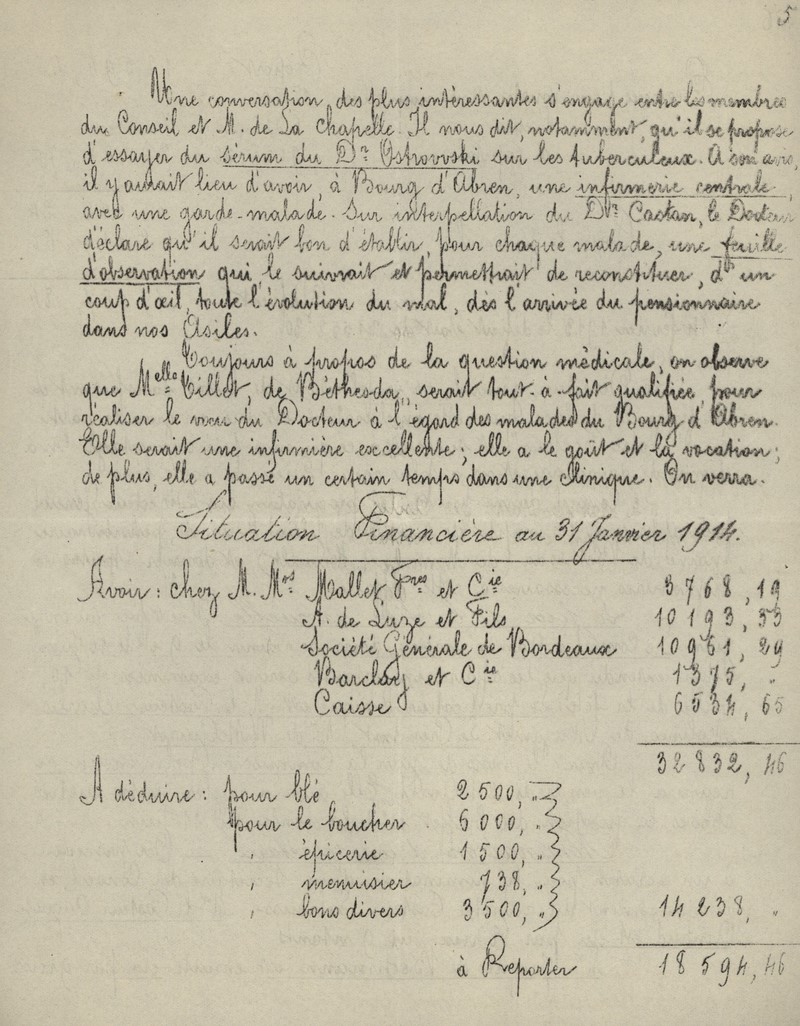 5
Une conversation des plus intéressantes s'engage entre les membres
du Conseil et M. de La Chapelle. Il nous dit, notamment, qu'il se propose
d'essayer du sérum du Dr Ostrovski sur les tuberculeux. A son avis,
il y aurait lieu d'avoir, à Bourg d'Abren, une infirmerie centrale,
avec une garde-malade. Sur interpellation du Dr Castan, le Docteur
déclare qu'il serait bon d'établir, pour chaque malade, une feuille
d'observation qui le suivrait et permettrait de reconstituer, d' un
coup d'œil, toute l'évolution du mal, dès l'arrivée du pensionnaire
dans nos Asiles.
Toujours à propos de la question médicale, on observe
que Melle Tillet, de Béthesda, serait tout-à-fait qualifiée pour
réaliser le vœu du Docteur à l'égard des malades du Bourg d'Abren.
Elle serait une infirmière excellente; elle a le goût et la vocation;
de plus, elle a passé un certain temps dans une clinique. On verra.
Situation Financière au 31 Janvier 1914.
Avoir: chez M. Mrs Mallet Fres et Cie 3768,19
A. de Luze et Fils 10193,33
Société Générale de Bordeaux 10961,29
Barclay et Cie 1375, "
Caisse 6534,65
32832,46
A déduire: pour blé 2500, "
pour le boucher 6000, "
" épicerie 1500, "
" menuisier 738, "
" bons divers 3500, " 14238, "
à Reporter 18594,46